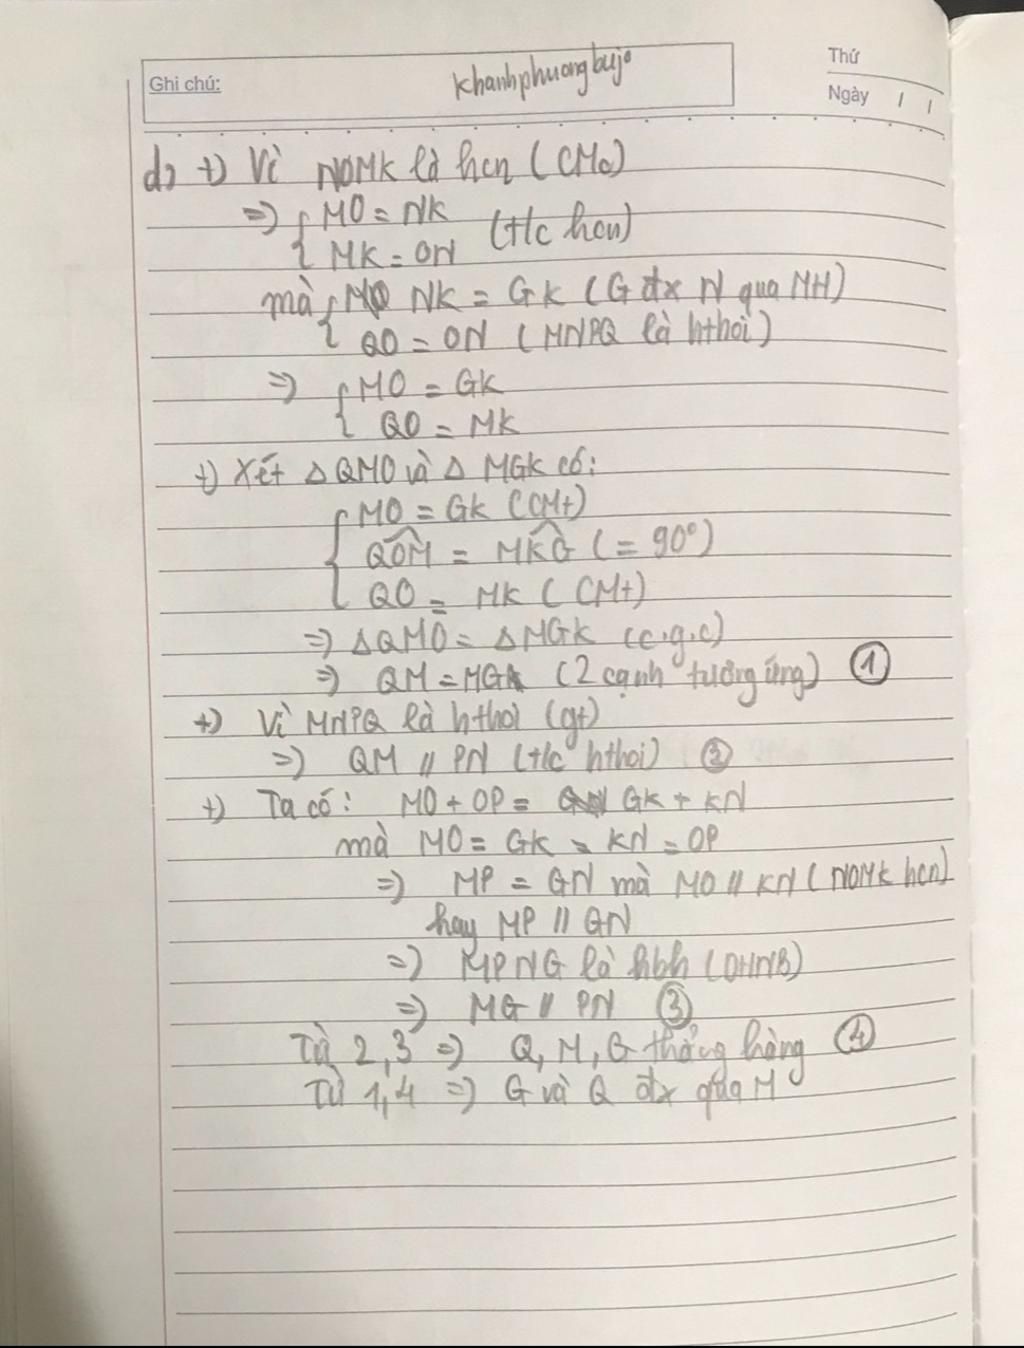 Ghi chú:
khanhphuongbujo
Thứ
Ngày / /
d) +) Vì NOMK là hcn (CMa)
=> { MO = NK
{ MK = ON (t/c hcn)
mà { NK = GK (G đx N qua MH)
{ QO = ON (MNPQ là hthoi)
=> { MO = GK
{ QO = MK
+) Xét Δ QMO và Δ MGK có:
{ MO = GK (CMt)
{ QOM = MKG (= 90°)
{ QO = MK (CMt)
=> ΔQMO = ΔMGK (c.g.c)
=> QM = MG (2 cạnh tương ứng) ①
+) Vì MNPQ là hthoi (gt)
=> QM // PN (t/c hthoi) ②
+) Ta có: MO + OP = GK + KN
mà MO = GK = KN = OP
=> MP = GN mà MO // KN (NOMK hcn)
hay MP // GN
=> MPNG là hbh (DHNB)
=> MG // PN ③
Từ 2, 3 => Q, M, G thẳng hàng ④
Từ 1, 4 => G và Q đx qua M